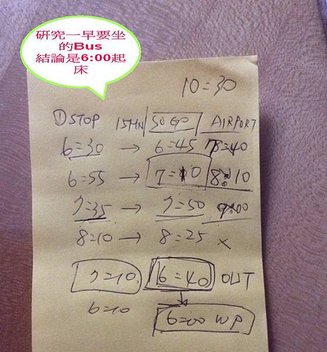 研究一早要坐
的Bus
結論是6:00起
床
10=30
STOP 15MN SOGO AIRPORT
6=30 → 6=45 7=40
6=55 → 7=10 8:10
7=35 → 7=50 9:00
8=10 → 8=25 x
7=10 6=40 OUT
6=10
6=00 WP